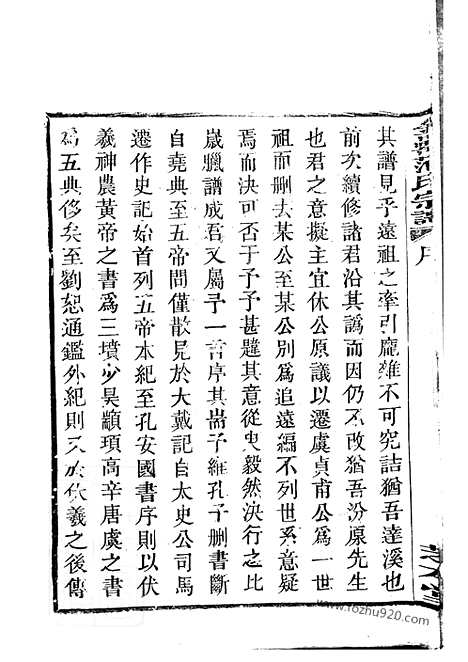 其譜見乎遠祖之牽引龐雜不可究詰猶吾達溪也
前次續修諸君沿其譌而因仍不改猶吾汾原先生
也君之意擬主宜休公原議以遷虞貞甫公為一世
祖而刪去某公至某公別為追遠編不列世系意疑
焉而決可否于予予甚韙其意從臾毅然決行之比
歲臘譜成君又屬予一言序其耑予維孔子刪書斷
自堯典至五帝問僅散見於大戴記自太史公司馬
遷作史記始首列五帝本紀至孔安國書序則以伏
羲神農黃帝之書為三墳少昊顓頊高辛唐虞之書
為五典侈矣至劉恕通鑑外紀則又於伏羲之後傳
范氏宗譜
序
www.fozhu920.com